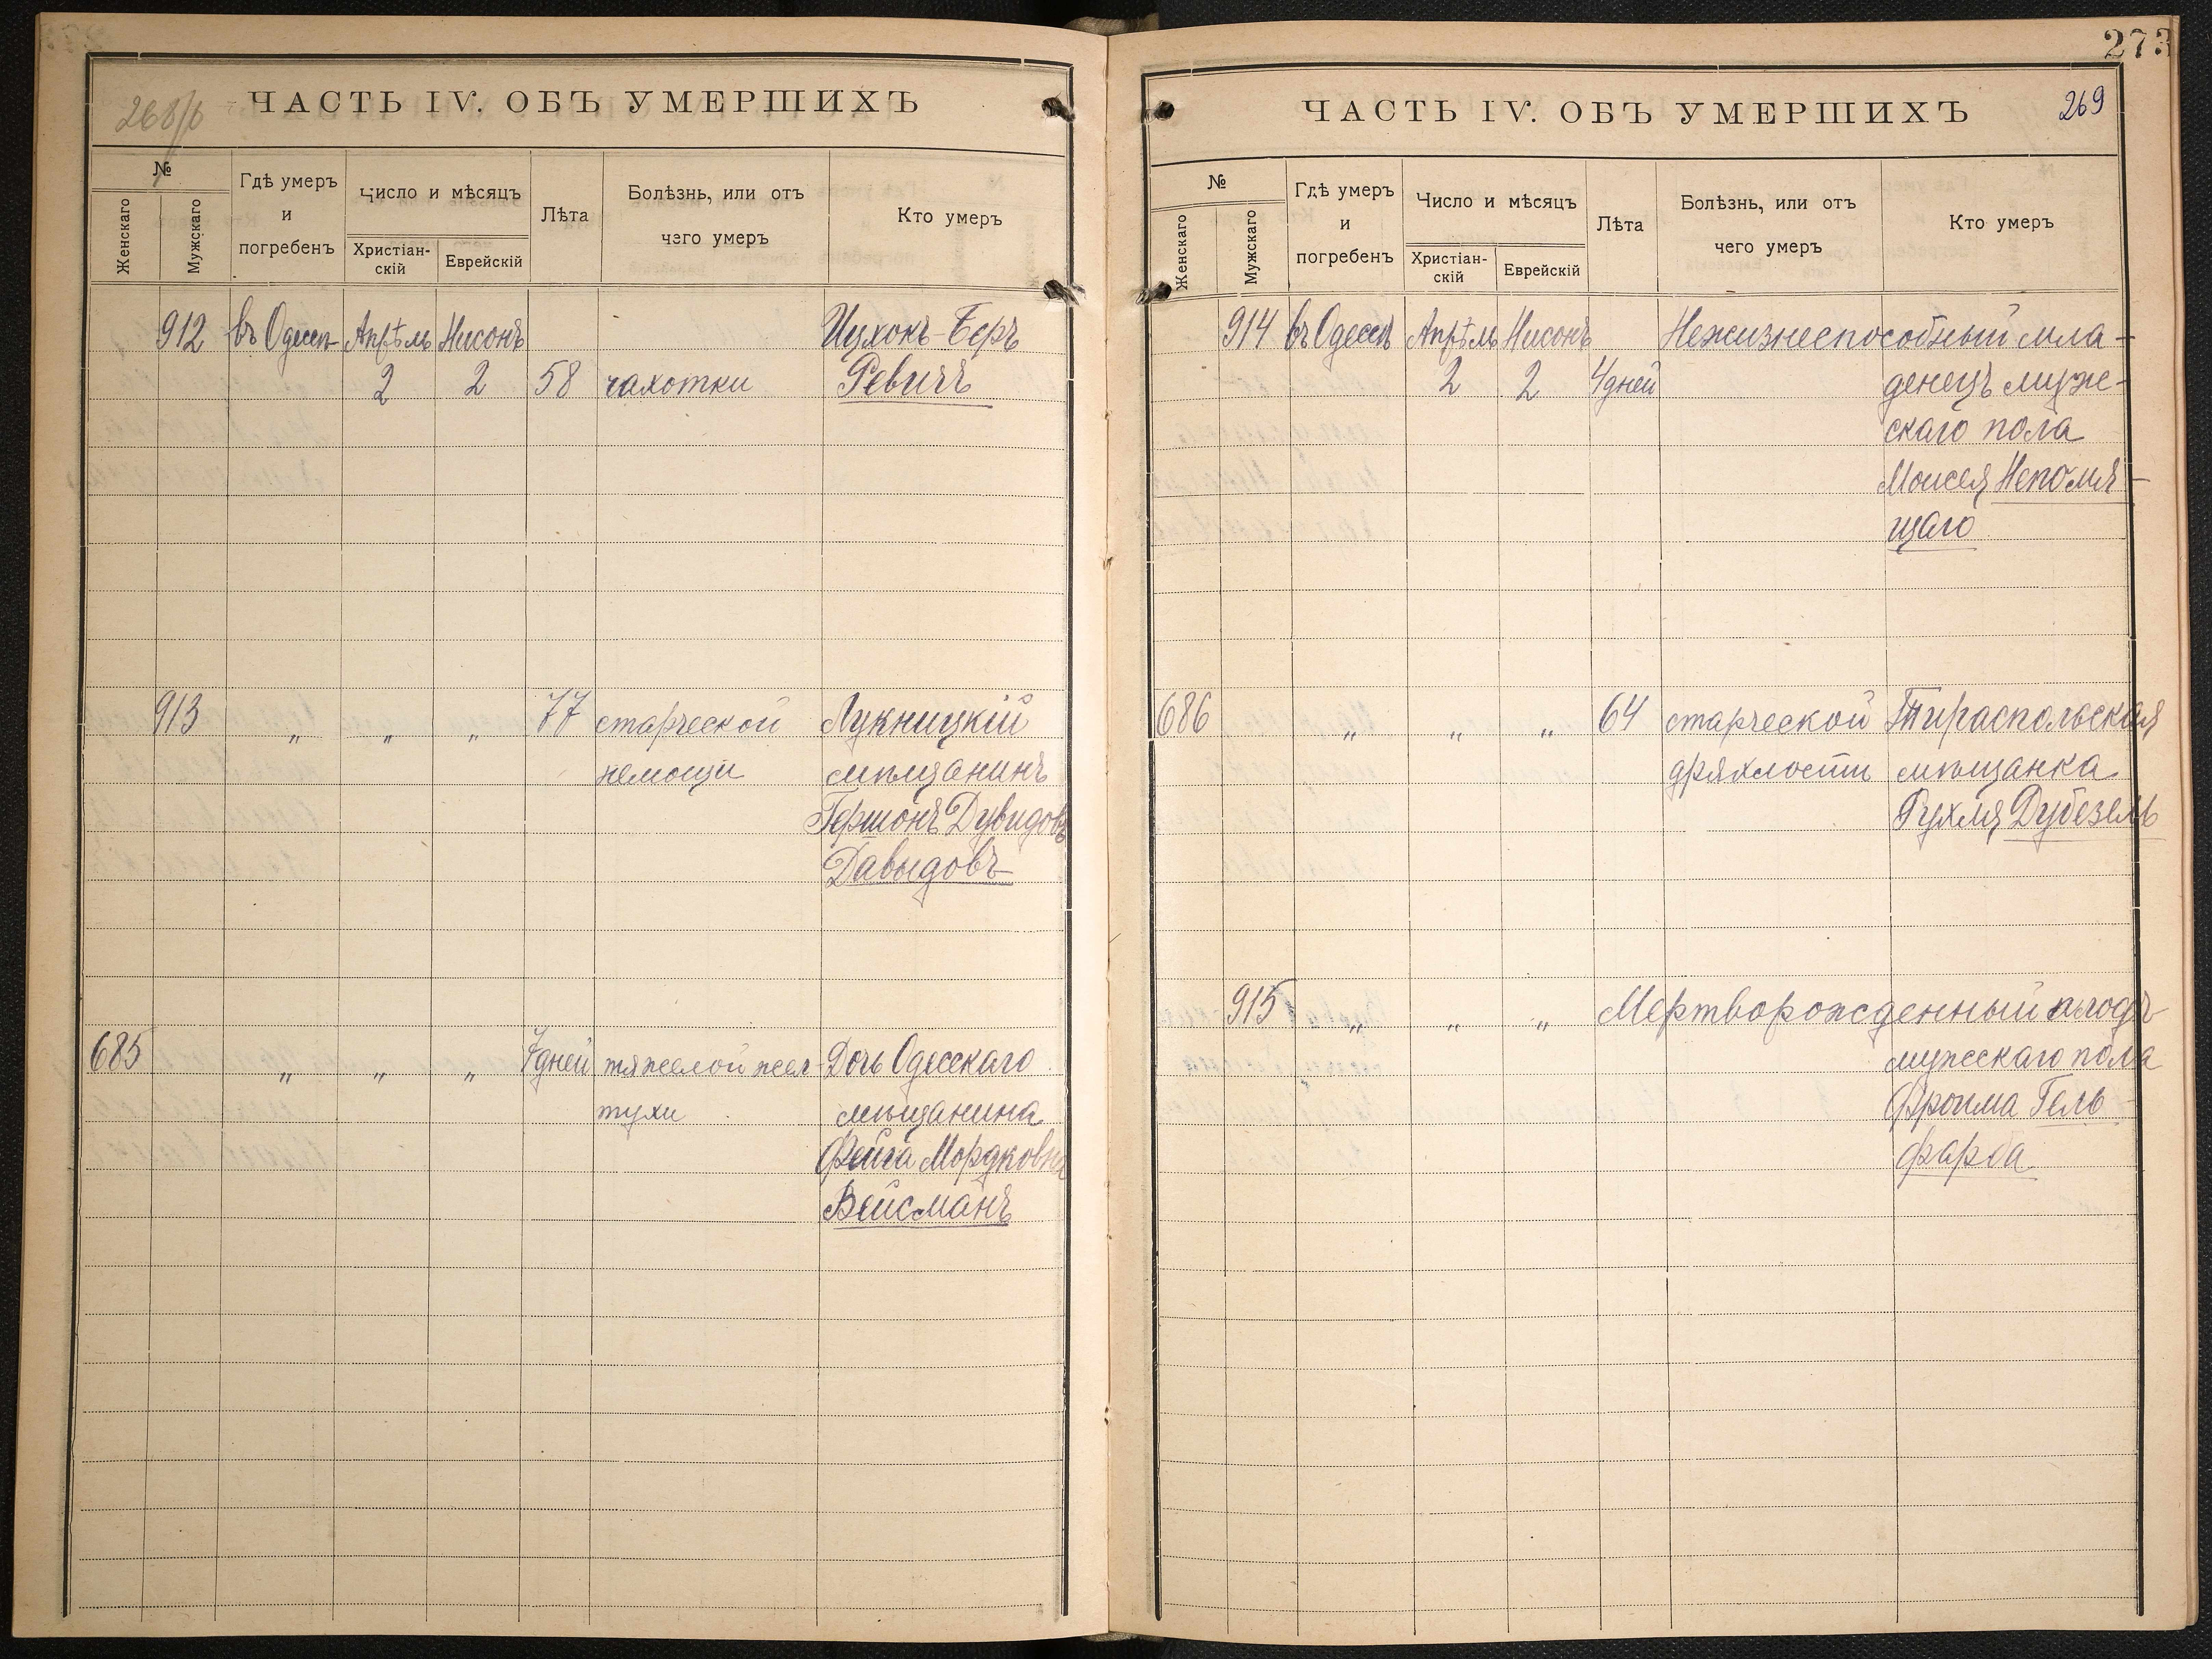 ЧАСТЬ IV. ОБЪ УМЕРШИХЪ
№
Женскаго
Мужскаго
Гдѣ умеръ
и
погребенъ
Число и мѣсяцъ
Христіан-
скій
Еврейскій
Лѣта
Болѣзнь, или отъ
чего умеръ
Кто умеръ
912 въ Одессѣ Апрѣль Нисонъ Ицхокъ-Беръ
2 2 58 чахотки Ревичъ
913 " " " 77 старческой Лукницкій
немощи мѣщанинъ
Гершонъ Дувидовъ
Давыдовъ
685 " " " 7дней тяжелой жел- Дочь Одесскаго
тухи мѣщанина
Фейга Мордковна
Вейсманъ
273
ЧАСТЬ IV. ОБЪ УМЕРШИХЪ 269
№
Женскаго
Мужскаго
Гдѣ умеръ
и
погребенъ
Число и мѣсяцъ
Христіан-
скій
Еврейскій
Лѣта
Болѣзнь, или отъ
чего умеръ
Кто умеръ
914 въ Одессѣ Апрѣль Нисонъ Нежизнеспособный мла-
2 2 4дней денецъ муже-
скаго пола
Моисея Непомня-
щаго
686 " " " 64 старческой Тираспольская
дряхлости мѣщанка
Рухля Дубезель
915 " " " Мертворожденный плодъ
мужескаго пола
Фроима Гель-
фарба